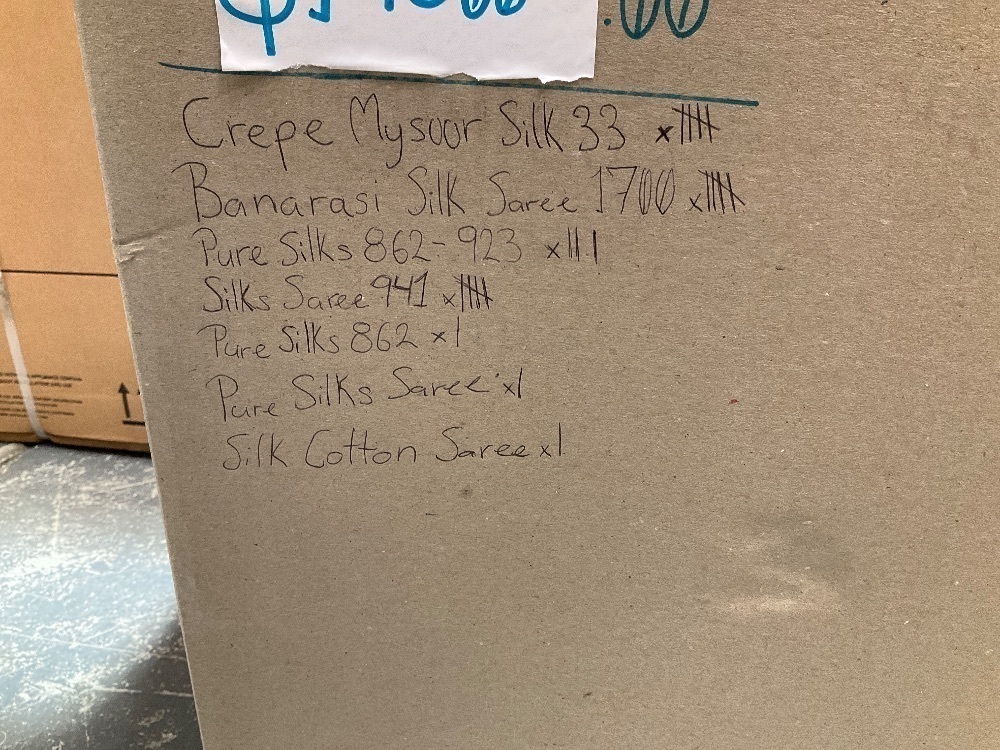 .00
Crepe Mysoor Silk 33 x𝍸
Banarasi Silk Saree 1700 x𝍸
Pure Silks 862-923 x|||
Silks Saree 941 x𝍸
Pure Silks 862 x|
Pure Silks Saree x|
Silk Cotton Saree x|